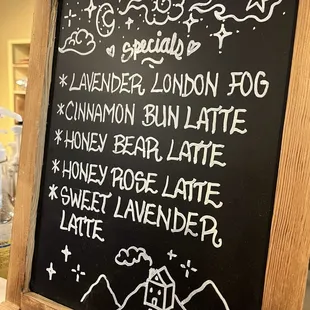 Specials
* LAVENDER LONDON FOG
* CINNAMON BUN LATTE
* HONEY BEAR LATTE
* HONEY ROSE LATTE
* SWEET LAVENDER
LATTE